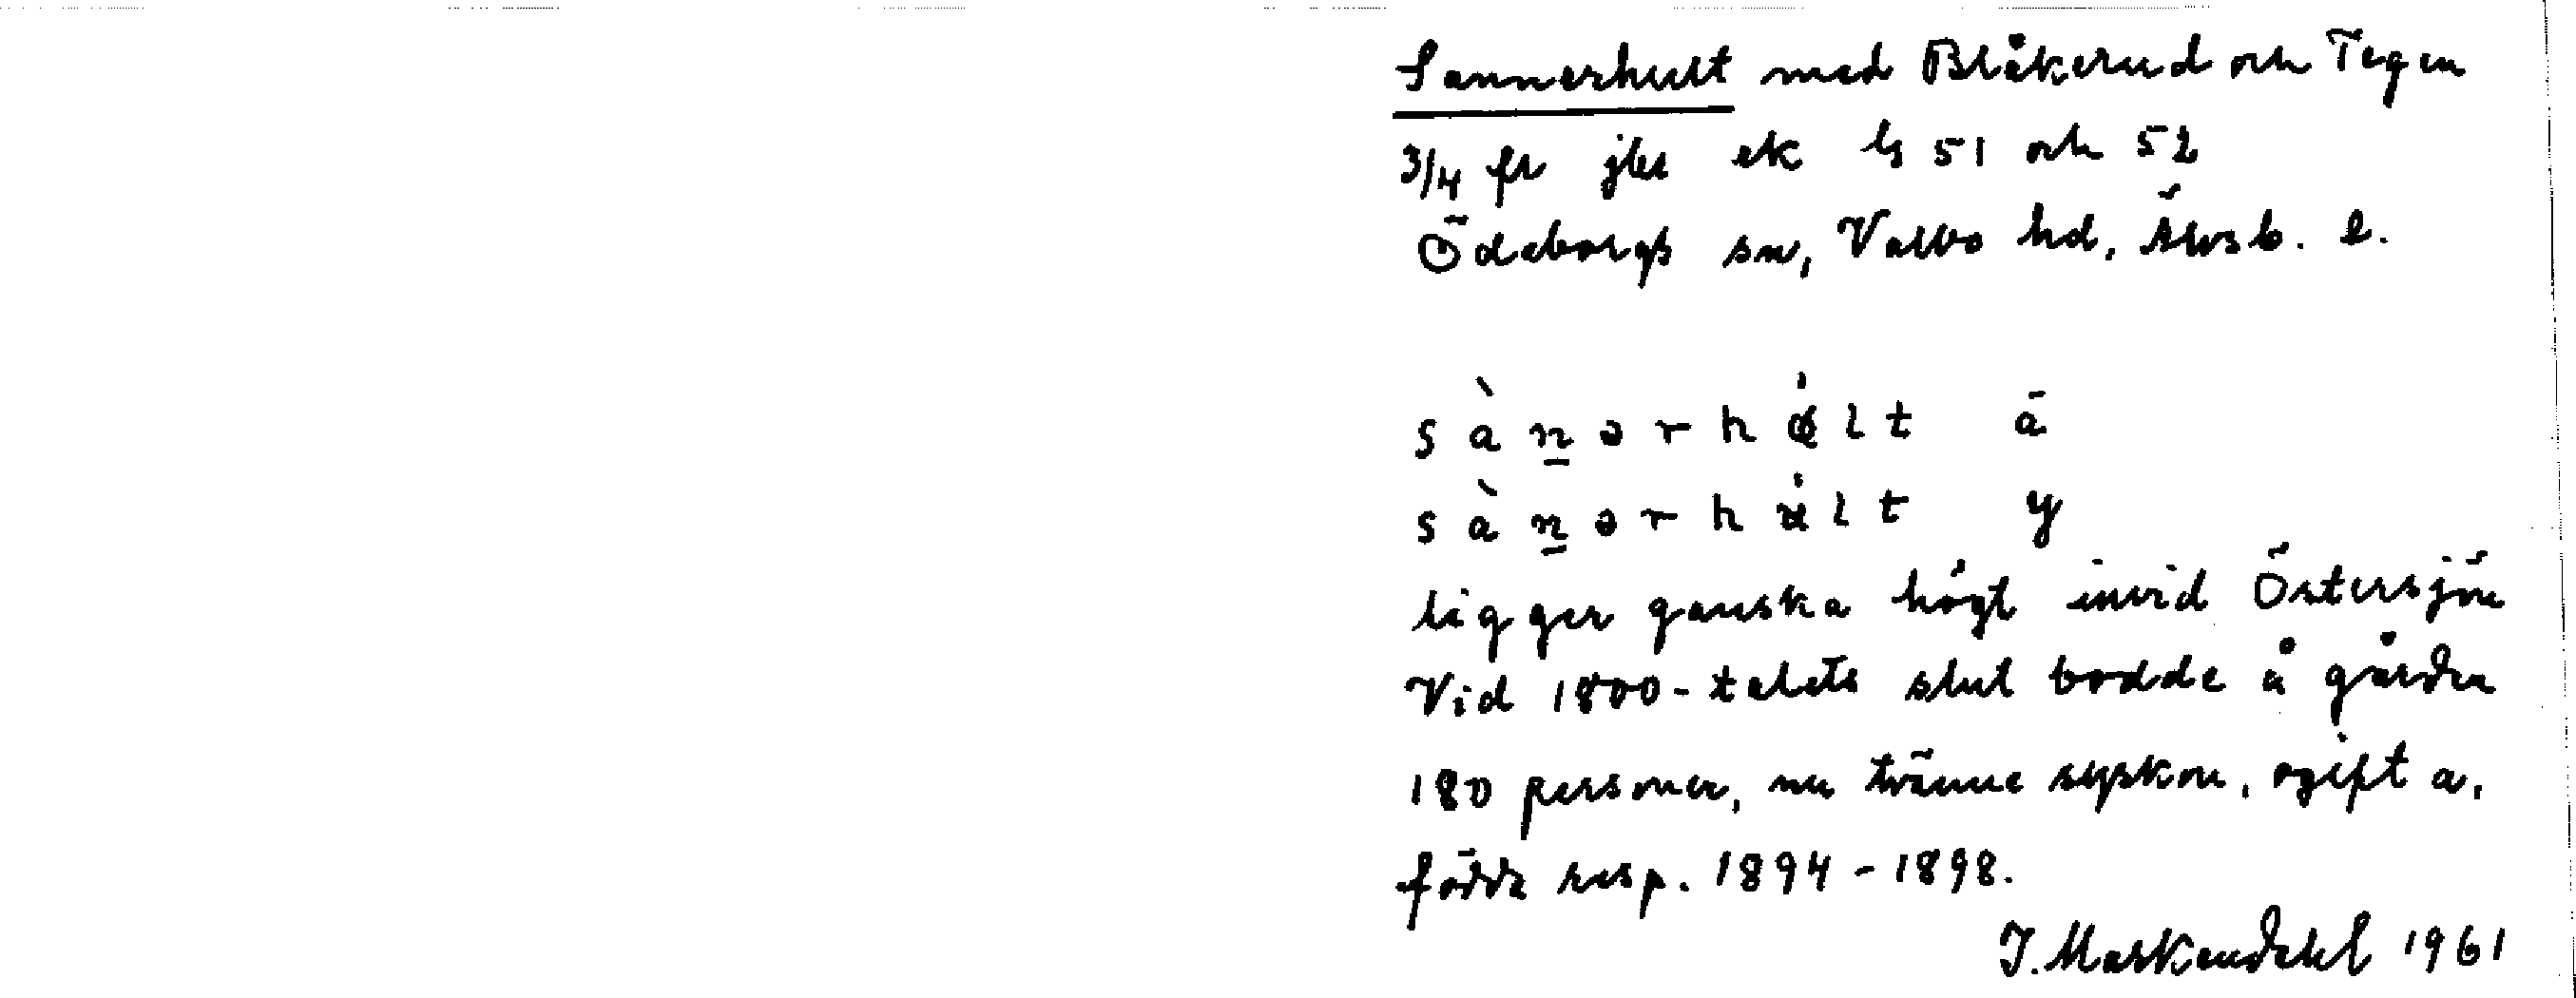 Sannerhult med Blåkerud och Tegen
3/4 fr jbr ek bs 51 och 52
Ödeborgs sn, Valbo hd, Älvsb. l.
s à n̲ ə r h ó̷ l t ä
s à n̲ ə r h l t y
ligger ganska högt invid Östersjön
Vid 1800-talets slut bodde å gården
180 personer, nu tvänne syskon, ogifta,
födda resp. 1894-1898.
J. Markendahl 1961